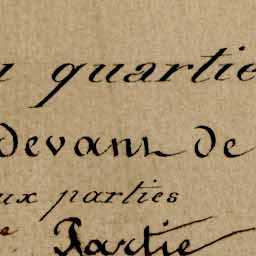 u quartie
devant de
ux parties
e Partie